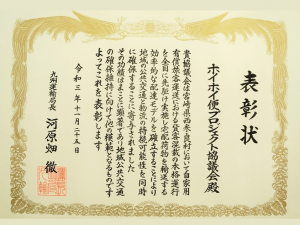 表彰状
ホイホイ便プロジェクト協議会殿
貴協議会は宮崎県西米良村において自家用
有償旅客運送における貨客混載の本格運行
を全国に先駆け実施し宅配荷物を輸送する
効率的な配送モデルを確立することにより
地域の公共交通と物流の持続可能性を同時
に確保することに寄与されました
その功績はまことに顕著であり地域公共交通
の確保維持に向けて他の模範となるものです
よってこれを表彰します
令和三年十一月二十五日
九州運輸局長 河原畑 徹